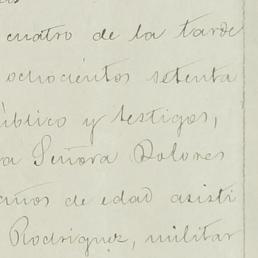 cuatro de la tarde
ochocientos setenta
úblico y testigos,
a Señora Dolores
años de edad asisti
Rodriguez, militar